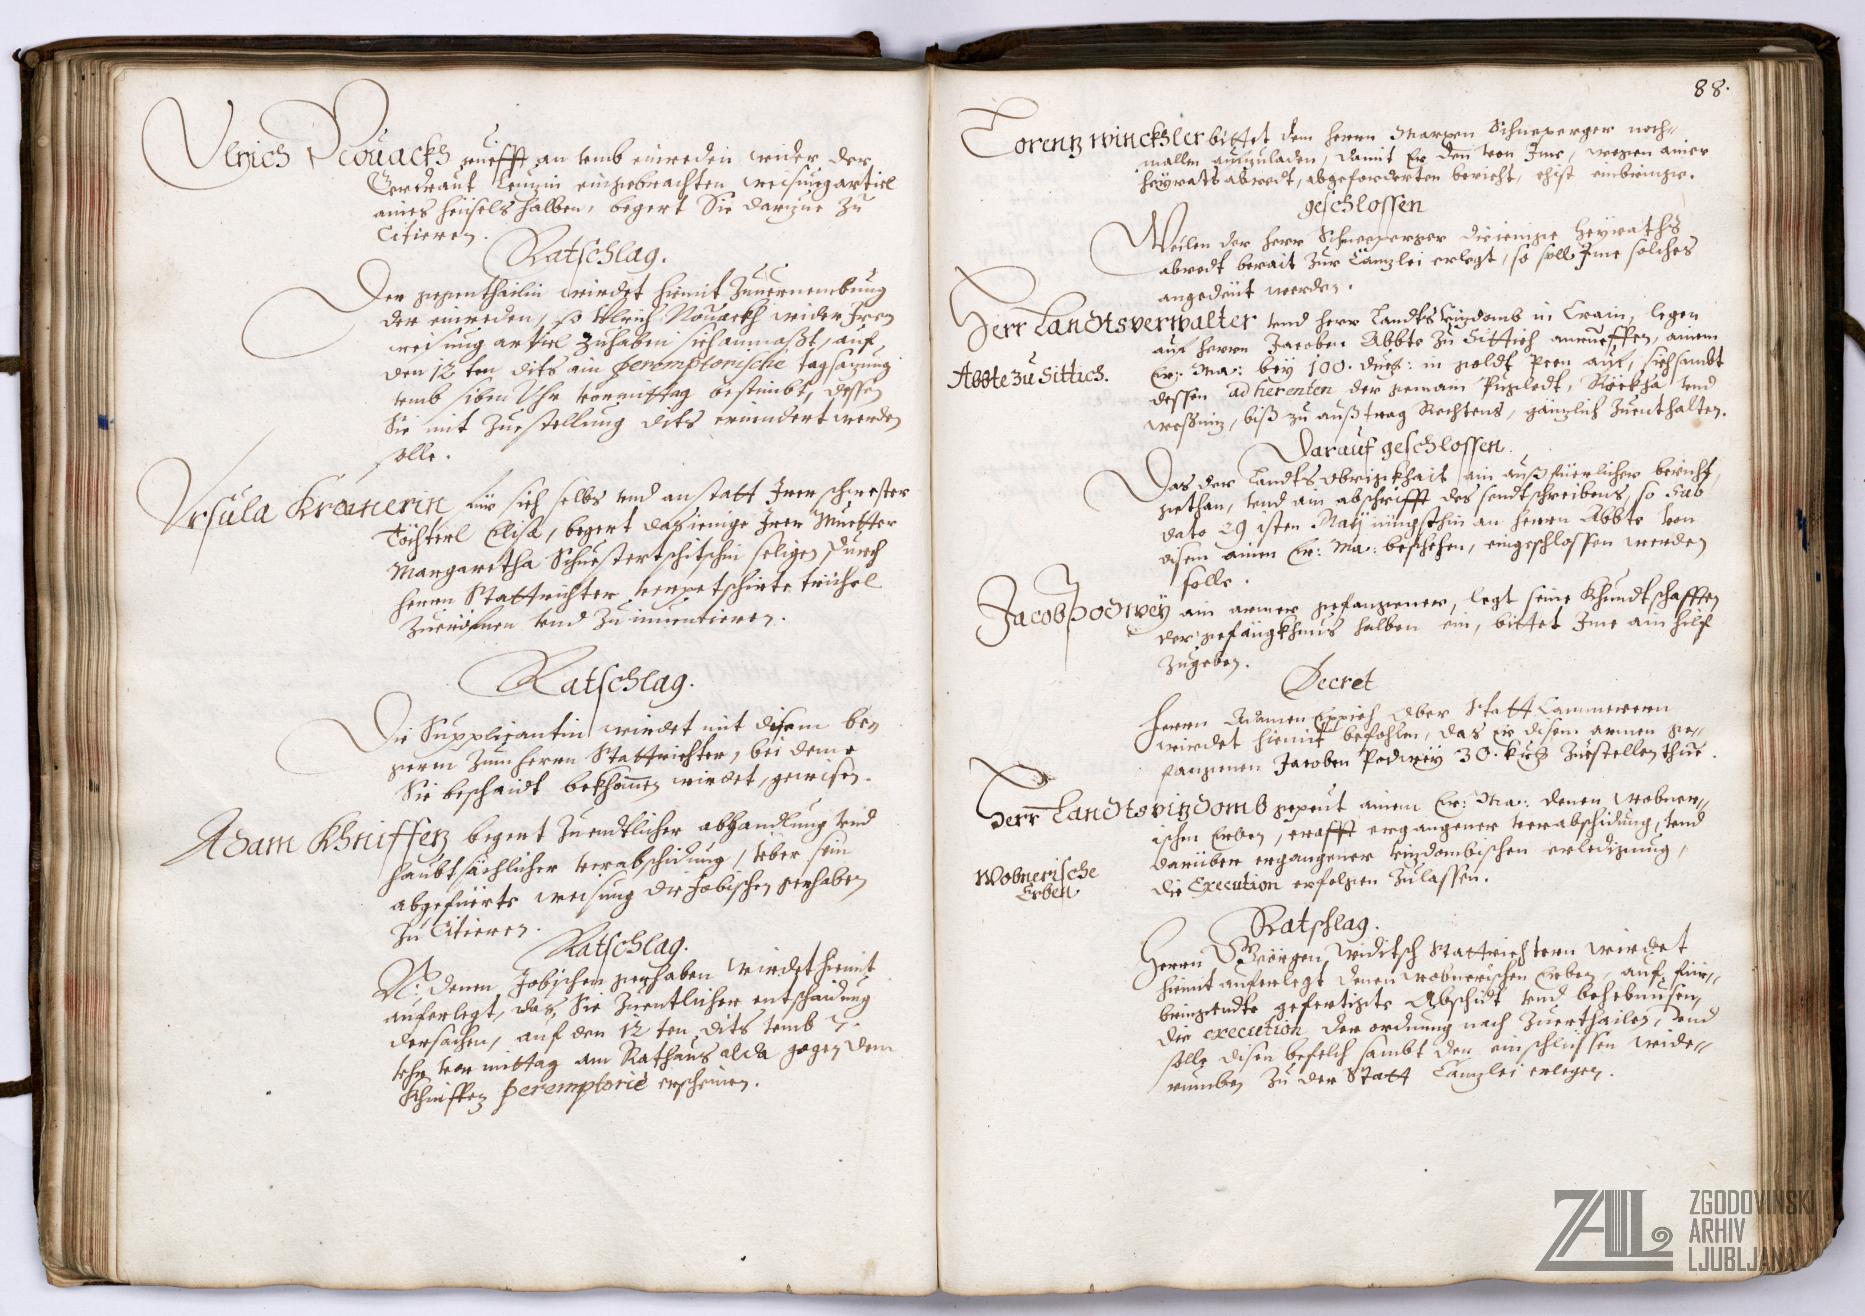 Ulrich Nouackh ruefft an umb einreden wider der
Gerdraut Leuzin eingebrachten weisungarticl
aines heüsels halben, begert Sie darzue zu
Citieren.
Ratschlag.
Der gegenthailin wirdet hiemit zuuernembung
der einreden, so Ulrich Nouackh wider Iren
weisung articl zuhaben sich anmaßt, auf
den 12 ten dits ain peremptorische tagsazung
umb siben Uhr vormittag bestimbt, dessen
Sie mit Zuestellung dits erindert werden
solle.
Ursula Kramerin für sich selbs und anstatt Irer schwester
Töchterl Elisa, begert dasienige Irer Muetter
Margaretha Schuestertschitschin seligen durch
herrn Stattrichter verpetschirte trühel
Zueröfnen und Zu inuentieren.
Ratschlag.
Die Supplicantin wirdet mit disem be-
gern zum herrn Stattrichter, bei deme
Sie beschaidt bekhomen wirdet, gewisen.
Adam Khniffez begert Zuendtlicher abhandlung und
haubtsächlicher verabschidung, uber sein
abgefüerte weisung die Jobischen gerhaben
Zu Citieren.
Ratschlag.
N: denen Jobischen gerhaben wirdet hiemit
auferlegt, das Sie Zuentlicher entschaidung
der sachen, auf den 12 ten dits umb 7.
uhr vor mittag am Rathaus alda gegen dem
Khniffez peremptoriè erscheinen.
88.
Lorentz winckhler bittet dem herrn Marxen Schneperger noch-
mallen aufzuladen, damit Er den von Ime, wegen ainer
heyrats abredt, abgeforderten bericht, ehist einbringe.
geschlossen
Weilen der herr Schneeperger dieienige heyraths
abredt berait zur Canzlei erlegt, so soll Ime solches
angedeüt werden.
Herr Landtsverwalter und herr Landts vizdomb in Crain, legen
auf herrn Jacoben Abbte zu Sittich anrueffen, ainem
Abbte zu Sittich.
Er: Ma: bey 100. duc: in goldt Peen auf, sich sambt
dessen adherenten der gemain Puzledt, Röckha und
weßniz, biß zu außtrag Rechtens, gänzlich zuenthalten.
Darauf geschlossen.
Das der Landts obrigkhait ain außfüerlicher bericht
gethan, und ain abschrifft des sendtschreibens, so sub
dato 29 isten Maij iüngsthin an herrn Abbte von
disem ainem Er: Ma: beschehen, eingeschlossen werden
solle.
Jacob Podwey ain armer gefangener, legt seine Khundtschafften
der gefängkhnus halben ein, bittet Ime ain hilf
Zugeben.
Decret
Herrn Adamen Eppich Ober Statt Cammerern
wirdet hiemit befohlen, das er disem armen ge-
fangenen Jacoben Podwey 30. kr. zuestellen thue.
Herr Landtsvizdomb gegeut ainem Er: Ma: denen wobner-
ischen Erben, crafft ergangener verabschidung, und
darüber ergangener vizdombischen erledigung,
Wobnerische
Erben
die Execution erfolgen zulassen.
Ratschlag.
Herrn Geörgen Widitsch Stattrichtern wirdet
hiemit auferlegt denen wobnerischen Erben, auf für-
bringendte gefertigte Abschidt und behebnussen,
die execution der ordnung nach zuerthailen, und
solle disen befelch sambt den einschlüssen wide-
rumben zu der Statt Canzlei erlegen.
ZAL
ZGODOVINSKI
ARHIV
LJUBLJANA